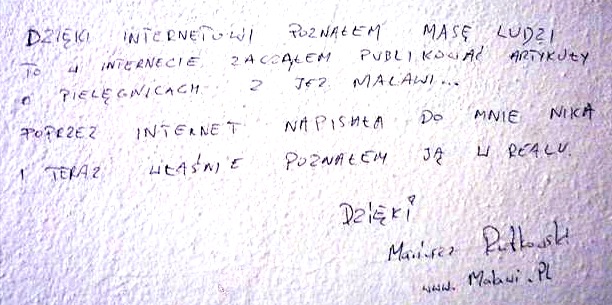 DZIĘKI INTERNETOWI POZNAŁEM MASĘ LUDZI
TO W INTERNECIE ZACZĄŁEM PUBLIKOWAĆ ARTYKUŁY
O PIELĘGNICACH Z JEZ MALAWI...
POPRZEZ INTERNET NAPISAŁA DO MNIE NIKA
I TERAZ WŁAŚNIE POZNAŁEM JĄ W REALU.
DZIĘKI
Mariusz Rutkowski
www.Malawi.Pl